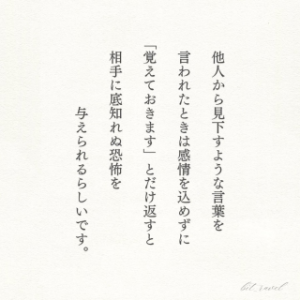 他人から見下すような言葉を
言われたときは感情を込めずに
「覚えておきます」とだけ返すと
相手に底知れぬ恐怖を
与えられるらしいです。